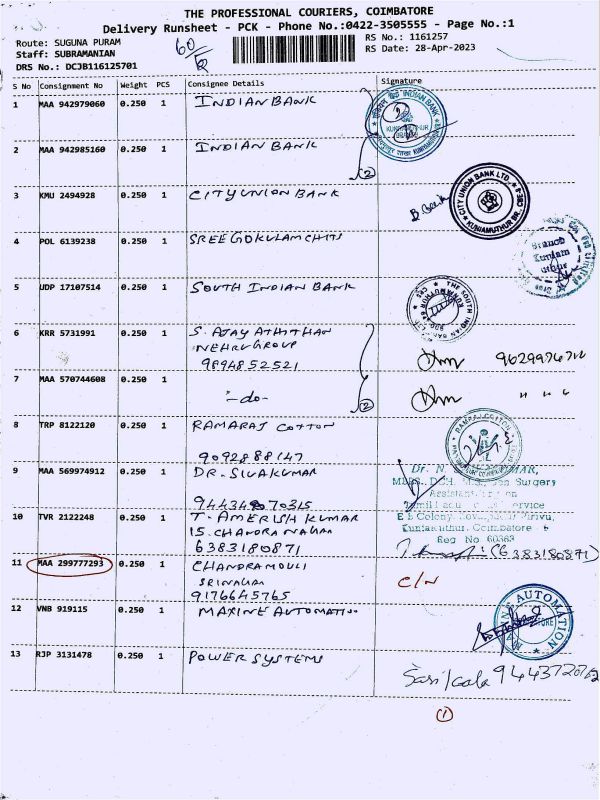 THE PROFESSIONAL COURIERS, COIMBATORE
Delivery Runsheet - PCK - Phone No.:0422-3505555 - Page No.:1
Route: SUGUNA PURAM
Staff: SUBRAMANIAN
DRS No.: DCJB116125701
60
RS No.: 1161257
RS Date: 28-Apr-2023
S No Consignment No Weight PCS Consignee Details Signature
1 MAA 942979060 0.250 1 INDIAN BANK
INDIAN BANK
KUNIAMUTHUR
2 MAA 942985160 0.250 1 INDIAN BANK
(2)
3 KMU 2494928 0.250 1 CITY UNION BANK
CITY UNION BANK LTD.
KUNIAMUTHUR BR. CBE-8
4 POL 6139238 0.250 1 SREE GOKULAM CHITS
Branch
Kuniam
uthur
5 UDP 17107514 0.250 1 SOUTH INDIAN BANK
THE SOUTH INDIAN BANK
KUNIAMUTHUR
6 KRR 5731991 0.250 1 S. AJAY ATHITHAN
NEHRU GROUP
9894852521
7 MAA 570744608 0.250 1 -do-
(2)
" " "
8 TRP 8122120 0.250 1 RAMARAJ COTTON
9092888147
RAMRAJ COTTON
9 MAA 569974912 0.250 1 DR. SIVAKUMAR
Dr. N.
Surgery
Assistant
Tamil service
E B Colony
Kuniamuthur, Coimbatore - 8
Reg No 60363
10 TVR 2122248 0.250 1 T. AMERISH KUMAR
15. CHANDRA NAGAR
6383180871
(6383180871)
11 MAA 299777293 0.250 1 CHANDRAMOULI
SRINAGAR
9176645765
C/N
12 VNB 919115 0.250 1 MAXINE AUTOMATION
AUTOMATION
13 RJP 3131478 0.250 1 POWER SYSTEMS
Sasikala
(1)